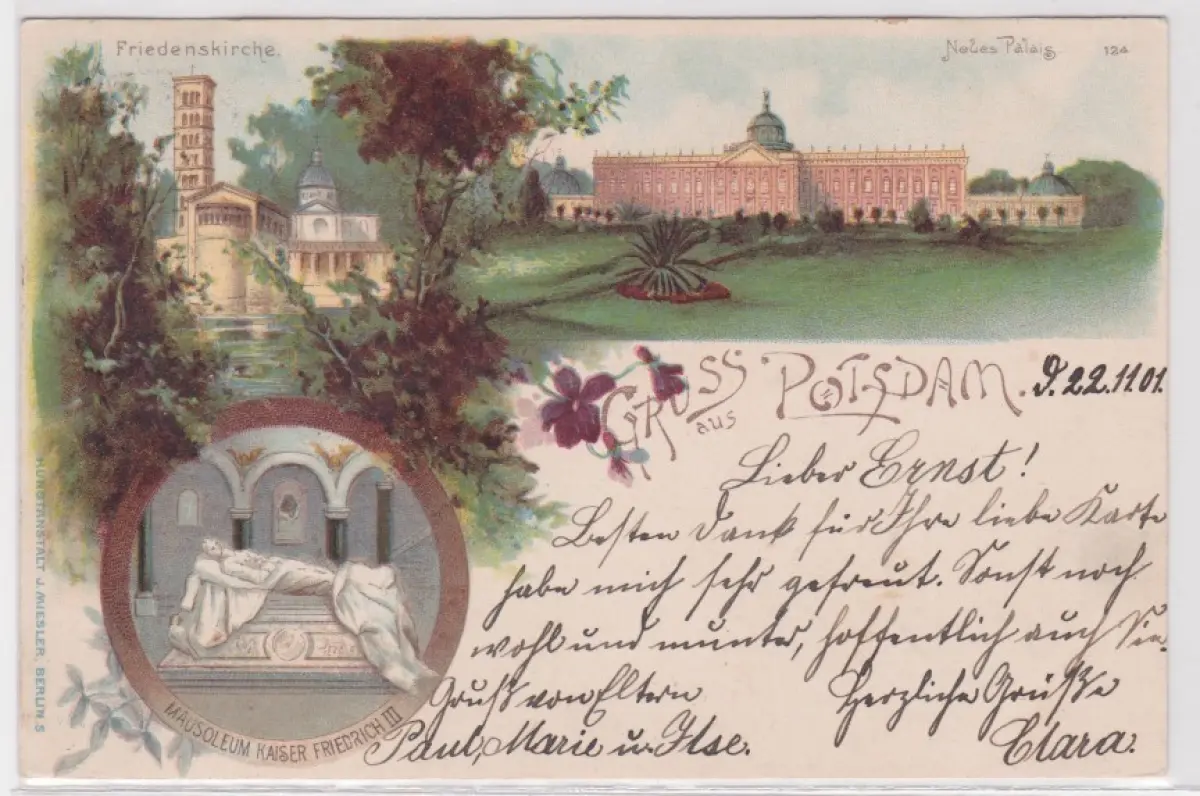 Friedenskirche.
Neues Palais
124
GRUSS aus POTSDAM.
P. 22.11.01.
Lieber Ernst!
Besten Dank für Ihre liebe Karte
habe mich sehr gefreut. Sonst noch
wohl und munter, hoffentlich auch Sie.
Gruß von Eltern
Paul, Marie u. Ilse.
Herzliche Grüße
Clara.
MAUSOLEUM KAISER FRIEDRICH III
KUNSTANSTALT J. MIESLER, BERLIN S